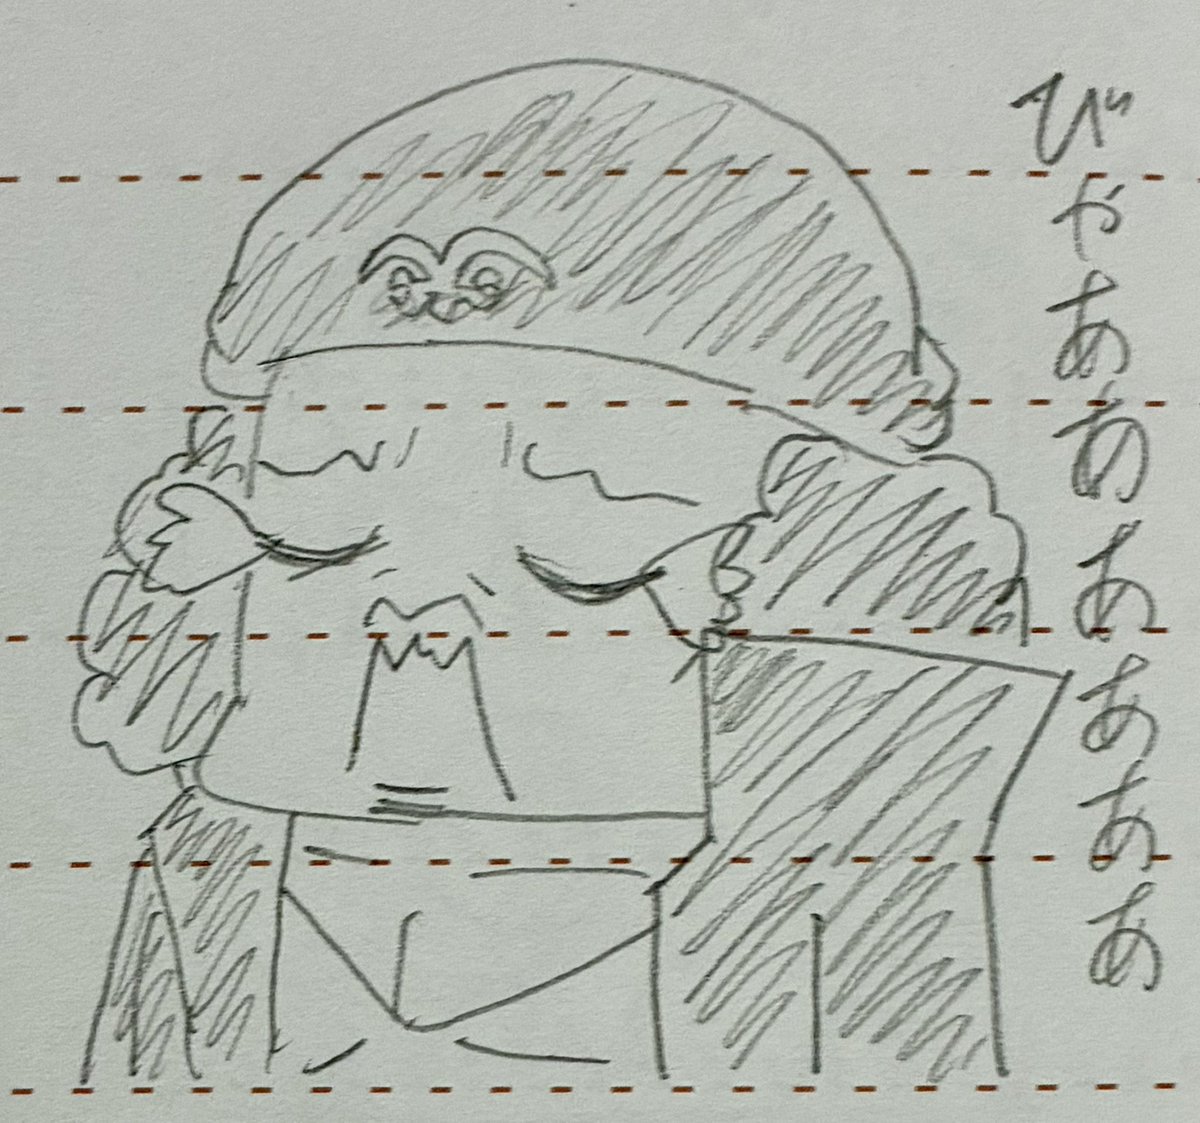 びやあああああああ